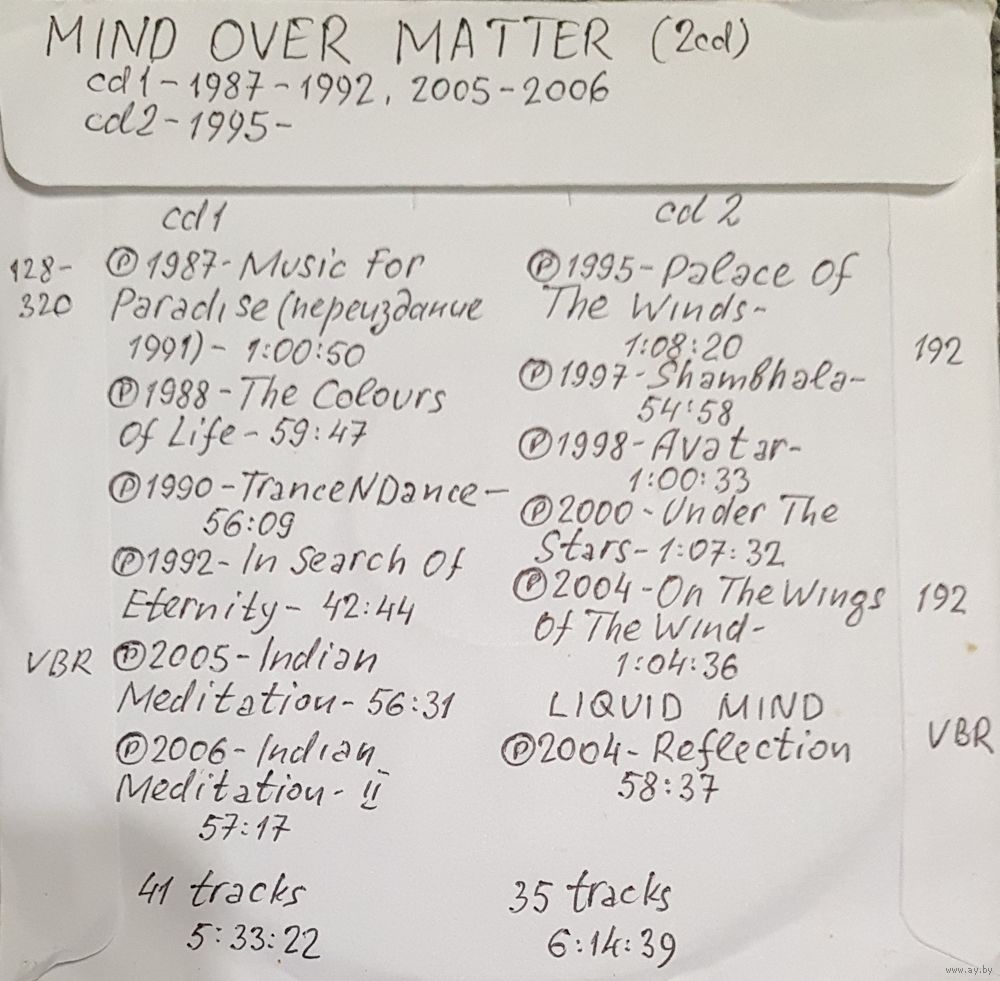 MIND OVER MATTER (2cd)
cd1-1987-1992, 2005-2006
cd2-1995-
cd1
128-
320
Ⓟ1987-Music For
Paradise (переиздание
1991)- 1:00:50
Ⓟ1988-The Colours
Of Life-59:47
Ⓟ1990-TranceNDance-
56:09
Ⓟ1992-In Search Of
Eternity- 42:44
VBR Ⓟ2005-Indian
Meditation-56:31
Ⓟ2006-Indian
Meditation- II
57:17
41 tracks
5:33:22
cd 2
Ⓟ1995-Palace Of
The Winds-
1:08:20
192
Ⓟ1997-Shambhala-
54:58
Ⓟ1998-Avatar-
1:00:33
Ⓟ2000-Under The
Stars-1:07:32
Ⓟ2004-On The Wings 192
Of The Wind-
1:04:36
LIQUID MIND
Ⓟ2004-Reflection VBR
58:37
35 tracks
6:14:39
www.ay.by